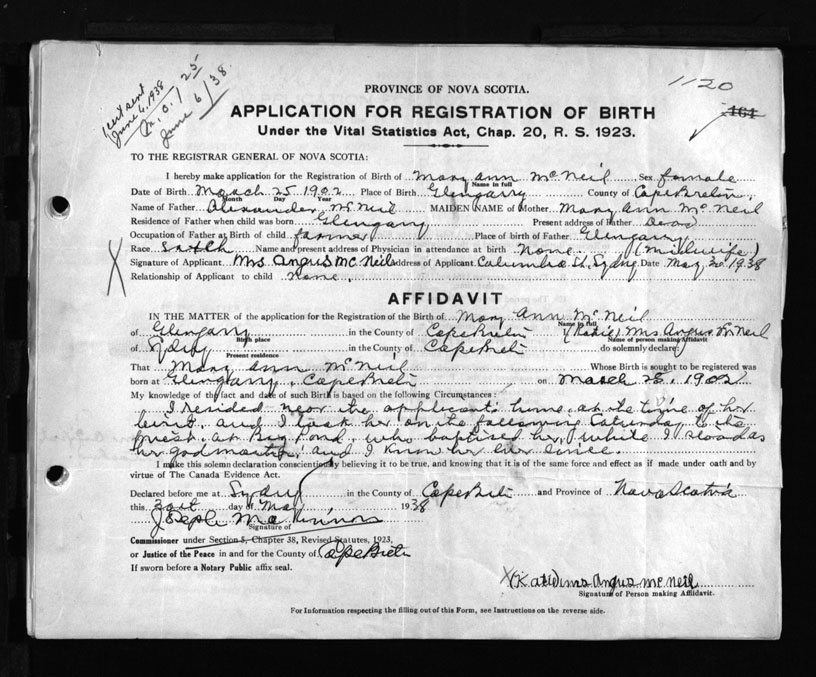 Cert sent
June 6, 1938
25
June 6/38
1120
161
PROVINCE OF NOVA SCOTIA.
APPLICATION FOR REGISTRATION OF BIRTH
Under the Vital Statistics Act, Chap. 20, R. S. 1923.
TO THE REGISTRAR GENERAL OF NOVA SCOTIA:
I hereby make application for the Registration of Birth of Mary Ann McNeil Sex female
Name in full
Date of Birth March 25 1902 Place of Birth Glengarry County of Cape Breton
Month Day Year
Name of Father Alexander McNeil MAIDEN NAME of Mother Mary Ann McNeil
Residence of Father when child was born Glengarry Present address of Father Dead
Occupation of Father at Birth of child farmer Place of birth of Father Glengarry
Race Scotch Name and present address of Physician in attendance at birth None (midwife)
Signature of Applicant Mrs Angus McNeil address of Applicant Columbia St, Sydney Date May 30 1938
Relationship of Applicant to child none.
AFFIDAVIT
IN THE MATTER of the application for the Registration of the Birth of Mary Ann McNeil
Name in full
of Glengarry in the County of Cape Breton (Katie) Mrs Angus McNeil
Birth place Name of person making Affidavit
of Sydney in the County of Cape Breton do solemnly declare:
Present residence
That Mary Ann McNeil Whose Birth is sought to be registered was
born at Glengarry, Cape Breton on March 25, 1902
My knowledge of the fact and date of such Birth is based on the following Circumstances:
I resided near the applicant's home at the time of her
birth, and I took her on the following Saturday to the
priest at Big Pond, who baptised her, while I stood as
her godmother, and I know her ever since.
I make this solemn declaration conscientiously believing it to be true, and knowing that it is of the same force and effect as if made under oath and by
virtue of The Canada Evidence Act.
Declared before me at Sydney in the County of Cape Breton and Province of Nova Scotia
this 30th day of May 1938
Joseph
Signature of
Commissioner under Section 5, Chapter 38, Revised Statutes, 1923,
or Justice of the Peace in and for the County of Cape Breton
If sworn before a Notary Public affix seal.
X (Katie) Mrs Angus McNeil
Signature of Person making Affidavit.
For Information respecting the filling out of this Form, see Instructions on the reverse side.